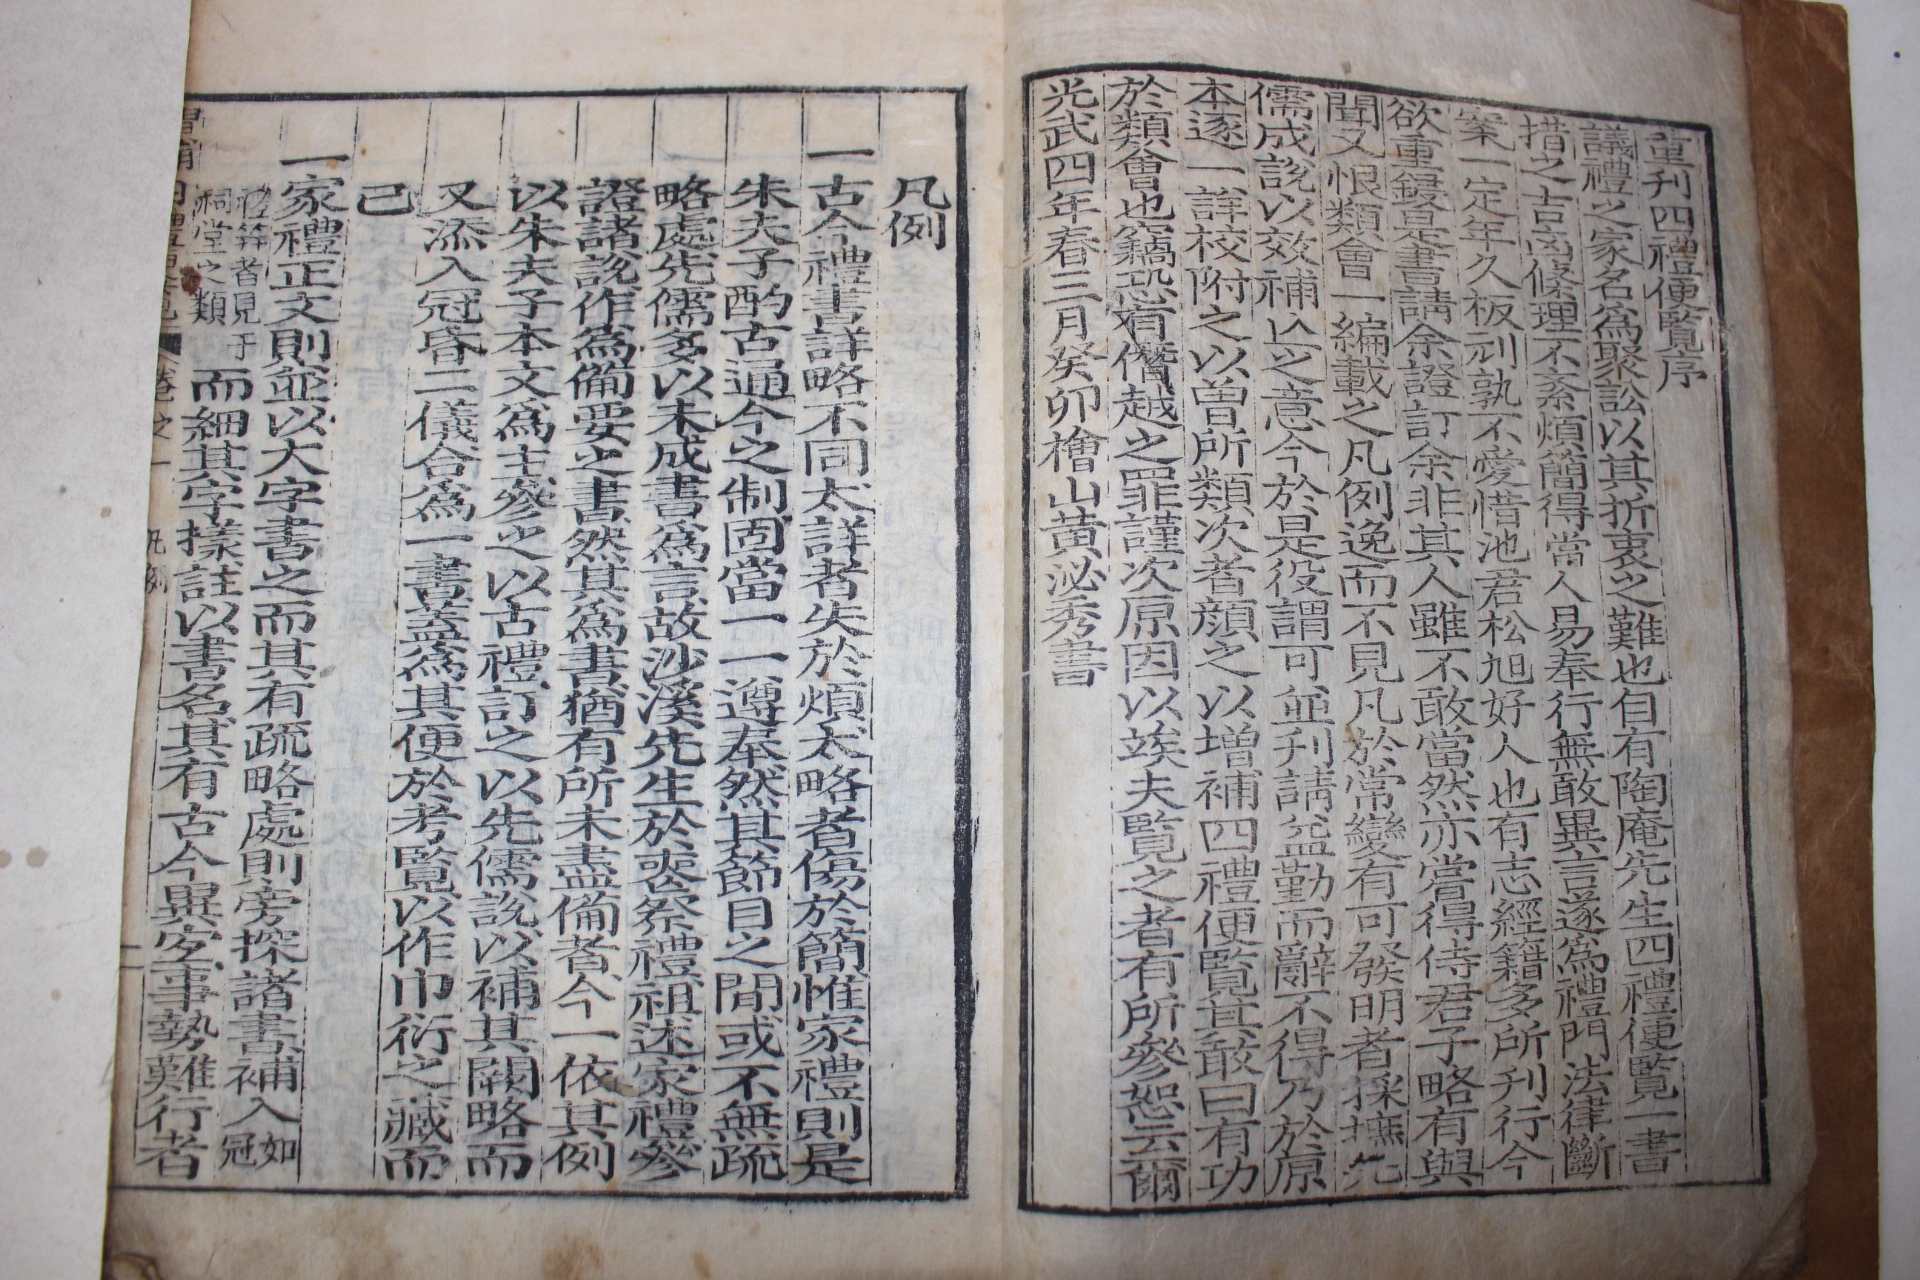 重刊四禮便覽序
議禮之家名爲聚訟以其折衷之難也自有陶庵先生四禮便覽一書
措之吉凶條理不紊煩簡得當人易奉行無敢異言遂爲禮門法律斷
案一定年久板刓孰不愛惜池君松旭好人也有志經籍多所刊行今
欲重鋟是書請余證訂余非其人雖不敢當然亦嘗得侍君子略有與
聞又恨類會一編載之凡例逸而不見凡於常變有可發明者採摭先
儒成說以效補亾之意今於是役謂可並刊請益勤而辭不得乃於原
本逐一詳校附之以曾所類次者顔之以增補四禮便覽其敢曰有功
於類會也竊恐有僭越之罪謹次原因以竢夫覽之者有所參恕云爾
光武四年春三月癸卯檜山黃泌秀書
凡例
一古今禮書詳略不同太詳者失於煩太略者傷於簡惟家禮則是
朱夫子酌古通今之制固當一一遵奉然其節目之間或不無疏
略處先儒多以未成書爲言故沙溪先生於喪祭禮祖述家禮參
證諸說作爲備要之書然其爲書猶有所未盡備者今一依其例
以朱夫子本文爲主參之以古禮訂之以先儒說以補其闕略而
又添入冠昏二儀合爲一書蓋爲其便於考覽以作巾衍之藏而
已
一家禮正文則並以大字書之而其有疏略處則旁探諸書補入如冠
禮筓者見于祠堂之類而細其字㨾註以書名其有古今異宜事勢難行者
增補四禮便覽 卷之一 凡例 一